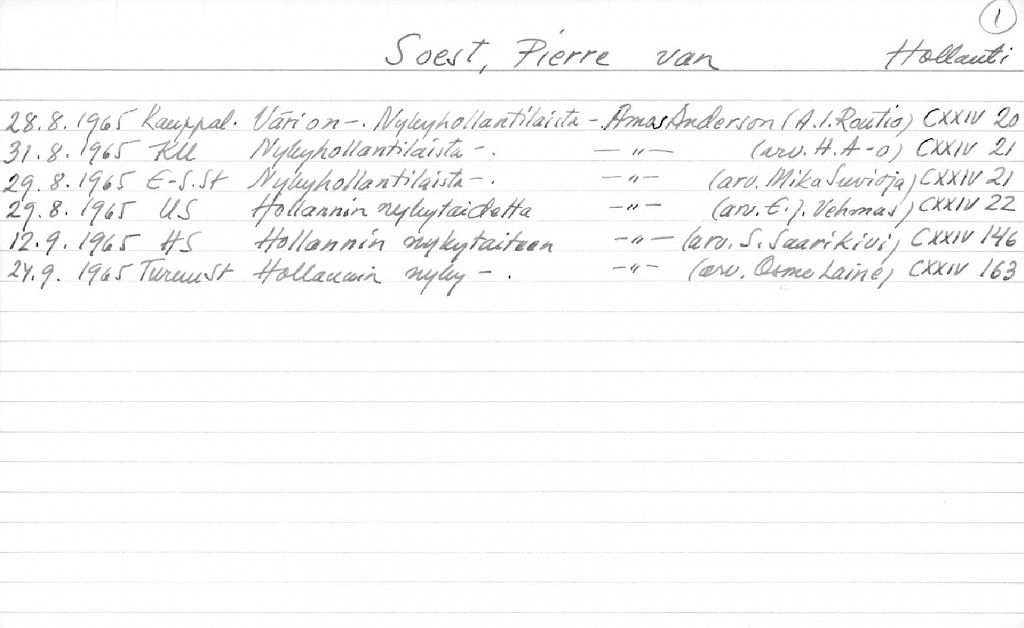 1
Soest, Pierre van Hollanti
28.8.1965 Kauppal. Väri on -. Nykyhollantilaista -. Amos Anderson (A.I. Routio) CXXIV 20
31.8.1965 KU Nykyhollantilaista -. -"- (arv. H. A-o) CXXIV 21
29.8.1965 E-S.St Nykyhollantilaista -. -"- (arv. Mika Suvioja) CXXIV 21
29.8.1965 US Hollannin nykytaidetta -"- (arv. E.J. Vehmas) CXXIV 22
12.9.1965 HS Hollannin nykytaiteen -"- (arv. S. Saarikivi) CXXIV 146
24.9.1965 TurunSt Hollannin nyky -. -"- (arv. Osmo Laine) CXXIV 163